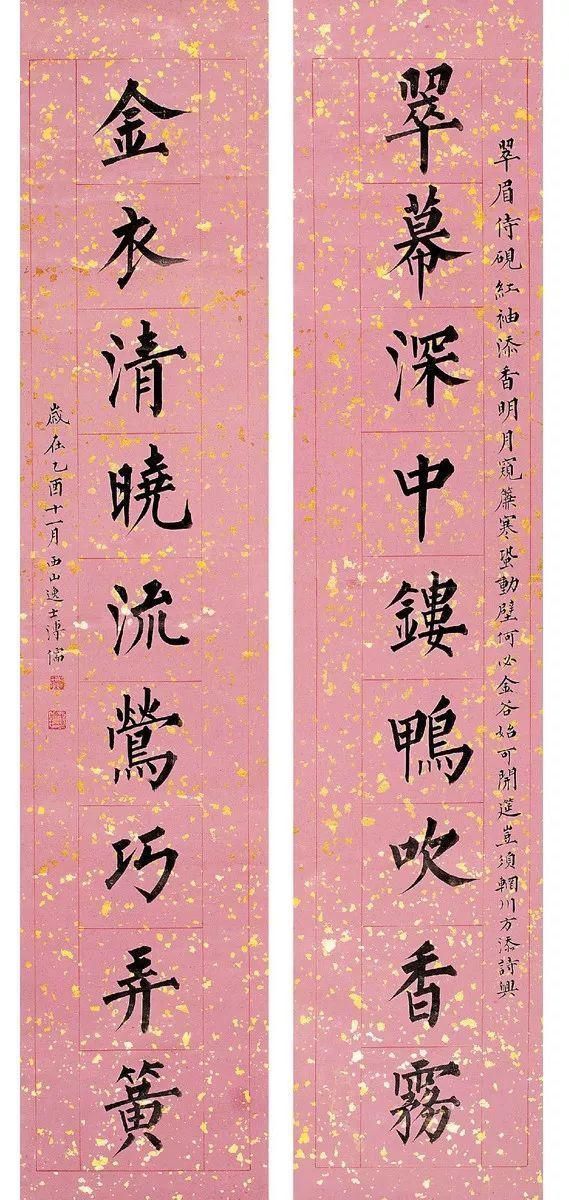 翠眉侍硯紅袖添香明月窺簾寒蛩動壁何必金谷始可開筵豈須輞川方添詩興
翠幕深中鏤鴨吹香霧
金衣清曉流鶯巧弄簧
歲在乙酉十一月西山逸士溥儒